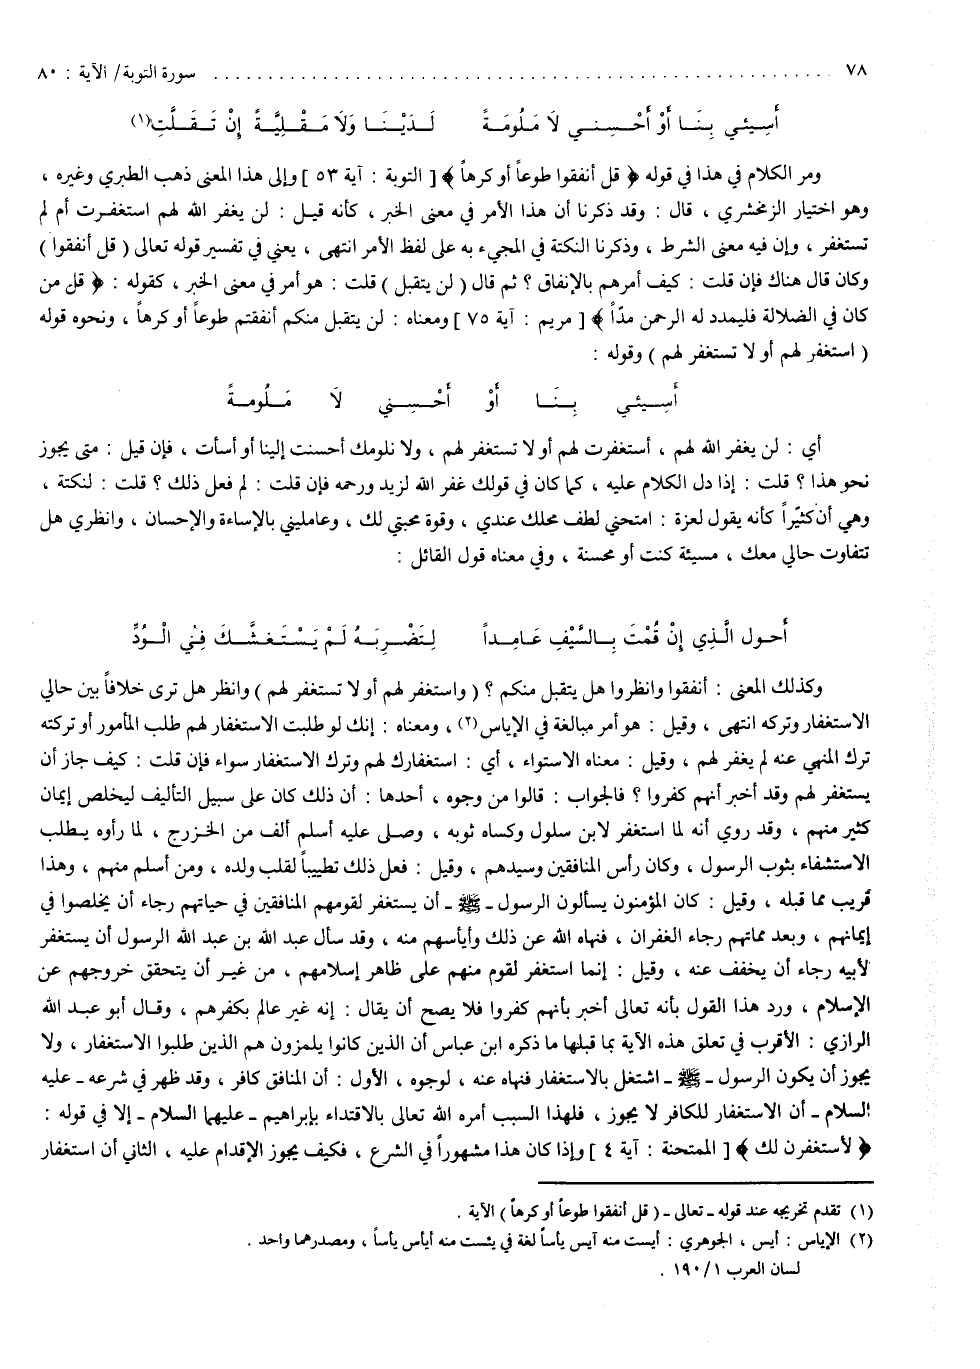 ٧٨ ........................................ سورة التوبة/ الآية : ٨٠
أَسِيئي بِنَــا أَوْ أَحْــسِنــي لاَ مَلُومَـةً    لَــدَيْــنَــا وَلاَ مَـقْـلِيَّـةً إِنْ تَـقَـلَّـتِ(١)
ومر الكلام في هذا في قوله ﴿ قل أنفقوا طوعاً أو كرهاً ﴾ [ التوبة : آية ٥٣ ] وإلى هذا المعنى ذهب الطبري وغيره ،
وهو اختيار الزمخشري ، قال : وقد ذكرنا أن هذا الأمر في معنى الخبر ، كأنه قيـل : لن يغفر الله لهم استغفـرت أم لم
تستغفر ، وإن فيه معنى الشرط ، وذكرنا النكتة في المجيء به على لفظ الأمر انتهى ، يعني في تفسير قوله تعالى ( قل أنفقوا )
وكان قال هناك فإن قلت : كيف أمرهم بالإنفاق ؟ ثم قال ( لن يتقبل ) قلت : هو أمر في معنى الخبر ، كقوله : ﴿ قل من
كان في الضلالة فليمدد له الرحمن مدّاً ﴾ [ مريم : آية ٧٥ ] ومعناه : لن يتقبل منكم أنفقتم طوعاً أو كرهاً ، ونحوه قوله
( استغفر لهم أو لا تستغفر لهم ) وقوله :
أَسِـيئي بِـنَـا أَوْ أَحْـسِـنـي لاَ مَـلُومـةً
أي : لن يغفر الله لهم ، أستغفرت لهم أو لا تستغفر لهم ، ولا نلومك أحسنت إلينا أو أسأت ، فإن قيل : متى يجوز
نحو هذا ؟ قلت : إذا دل الكلام عليه ، كما كان في قولك غفر الله لزيد ورحمه فإن قلت : لم فعل ذلك ؟ قلت : لنكتة ،
وهي أن كثيّراً كأنه يقول لعزة : امتحني لطف محلك عندي ، وقوة محبتي لك ، وعامليني بالإساءة والإحسان ، وانظري هل
تتفاوت حالي معك ، مسيئة كنت أو محسنة ، وفي معناه قول القائل :
أحول الَّذِي إِنْ قُمْتَ بِـالسَّيْفِ عَـامِـداً    لِتَضْـرِبَـهُ لَمْ يَسْـتَـغـشَّـكَ فِي الْـوُدِّ
وكذلك المعنى : أنفقوا وانظروا هل يتقبل منكم ؟ ( واستغفر لهم أو لا تستغفر لهم ) وانظر هل ترى خلافاً بين حالي
الاستغفار وتركه انتهى ، وقيل : هو أمر مبالغة في الإياس (٢) ، ومعناه : إنك لو طلبت الاستغفار لهم طلب المأمور أو تركته
ترك المنهي عنه لم يغفر لهم ، وقيل : معناه الاستواء ، أي : استغفارك لهم وترك الاستغفار سواء فإن قلت : كيف جاز أن
يستغفر لهم وقد أخبر أنهم كفروا ؟ فالجواب : قالوا من وجوه ، أحدها : أن ذلك كان على سبيل التأليف ليخلص إيمان
كثير منهم ، وقد روي أنه لما استغفر لابن سلول وكساه ثوبه ، وصلى عليه أسلم ألف من الخـزرج ، لما رأوه يـطلب
الاستشفاء بثوب الرسول ، وكان رأس المنافقين وسيدهم ، وقيل : فعل ذلك تطييباً لقلب ولده ، ومن أسلم منهم ، وهذا
قريب مما قبله ، وقيل : كان المؤمنون يسألون الرسول ـ ﷺ ـ أن يستغفر لقومهم المنافقين في حياتهم رجاء أن يخلصوا في
إيمانهم ، وبعد مماتهم رجاء الغفران ، فنهاه الله عن ذلك وأيأسهم منه ، وقد سأل عبد الله بن عبد الله الرسول أن يستغفر
لأبيه رجاء أن يخفف عنه ، وقيل : إنما استغفر لقوم منهم على ظاهر إسلامهم ، من غيـر أن يتحقق خروجهم عن
الإسلام ، ورد هذا القول بأنه تعالى أخبر بأنهم كفروا فلا يصح أن يقال : إنه غير عالم بكفرهم ، وقـال أبو عبـد الله
الرازي : الأقرب في تعلق هذه الآية بما قبلها ما ذكره ابن عباس أن الذين كانوا يلمزون هم الذين طلبوا الاستغفار ، ولا
يجوز أن يكون الرسول ـ ﷺ ـ اشتغل بالاستغفار فنهاه عنه ، لوجوه ، الأول : أن المنافق كافر ، وقد ظهر في شرعه ـ عليه
السلام ـ أن الاستغفار للكافر لا يجوز ، فلهذا السبب أمره الله تعالى بالاقتداء بإبراهيم ـ عليهما السلام ـ إلا في قوله :
﴿ لأستغفرن لك ﴾ [ الممتحنة : آية ٤ ] وإذا كان هذا مشهوراً في الشرع ، فكيف يجوز الإقدام عليه ، الثاني أن استغفار
(١) تقدم تخريجه عند قوله ـ تعالى ـ ( قل أنفقوا طوعاً أو كرهاً ) الآية .
(٢) الإياس : أيس ، الجوهري : أيست منه آيس يأساً لغة في يئست منه أيأس يأساً ، ومصدرهما واحد .
لسان العرب ١/ ١٩٠ .